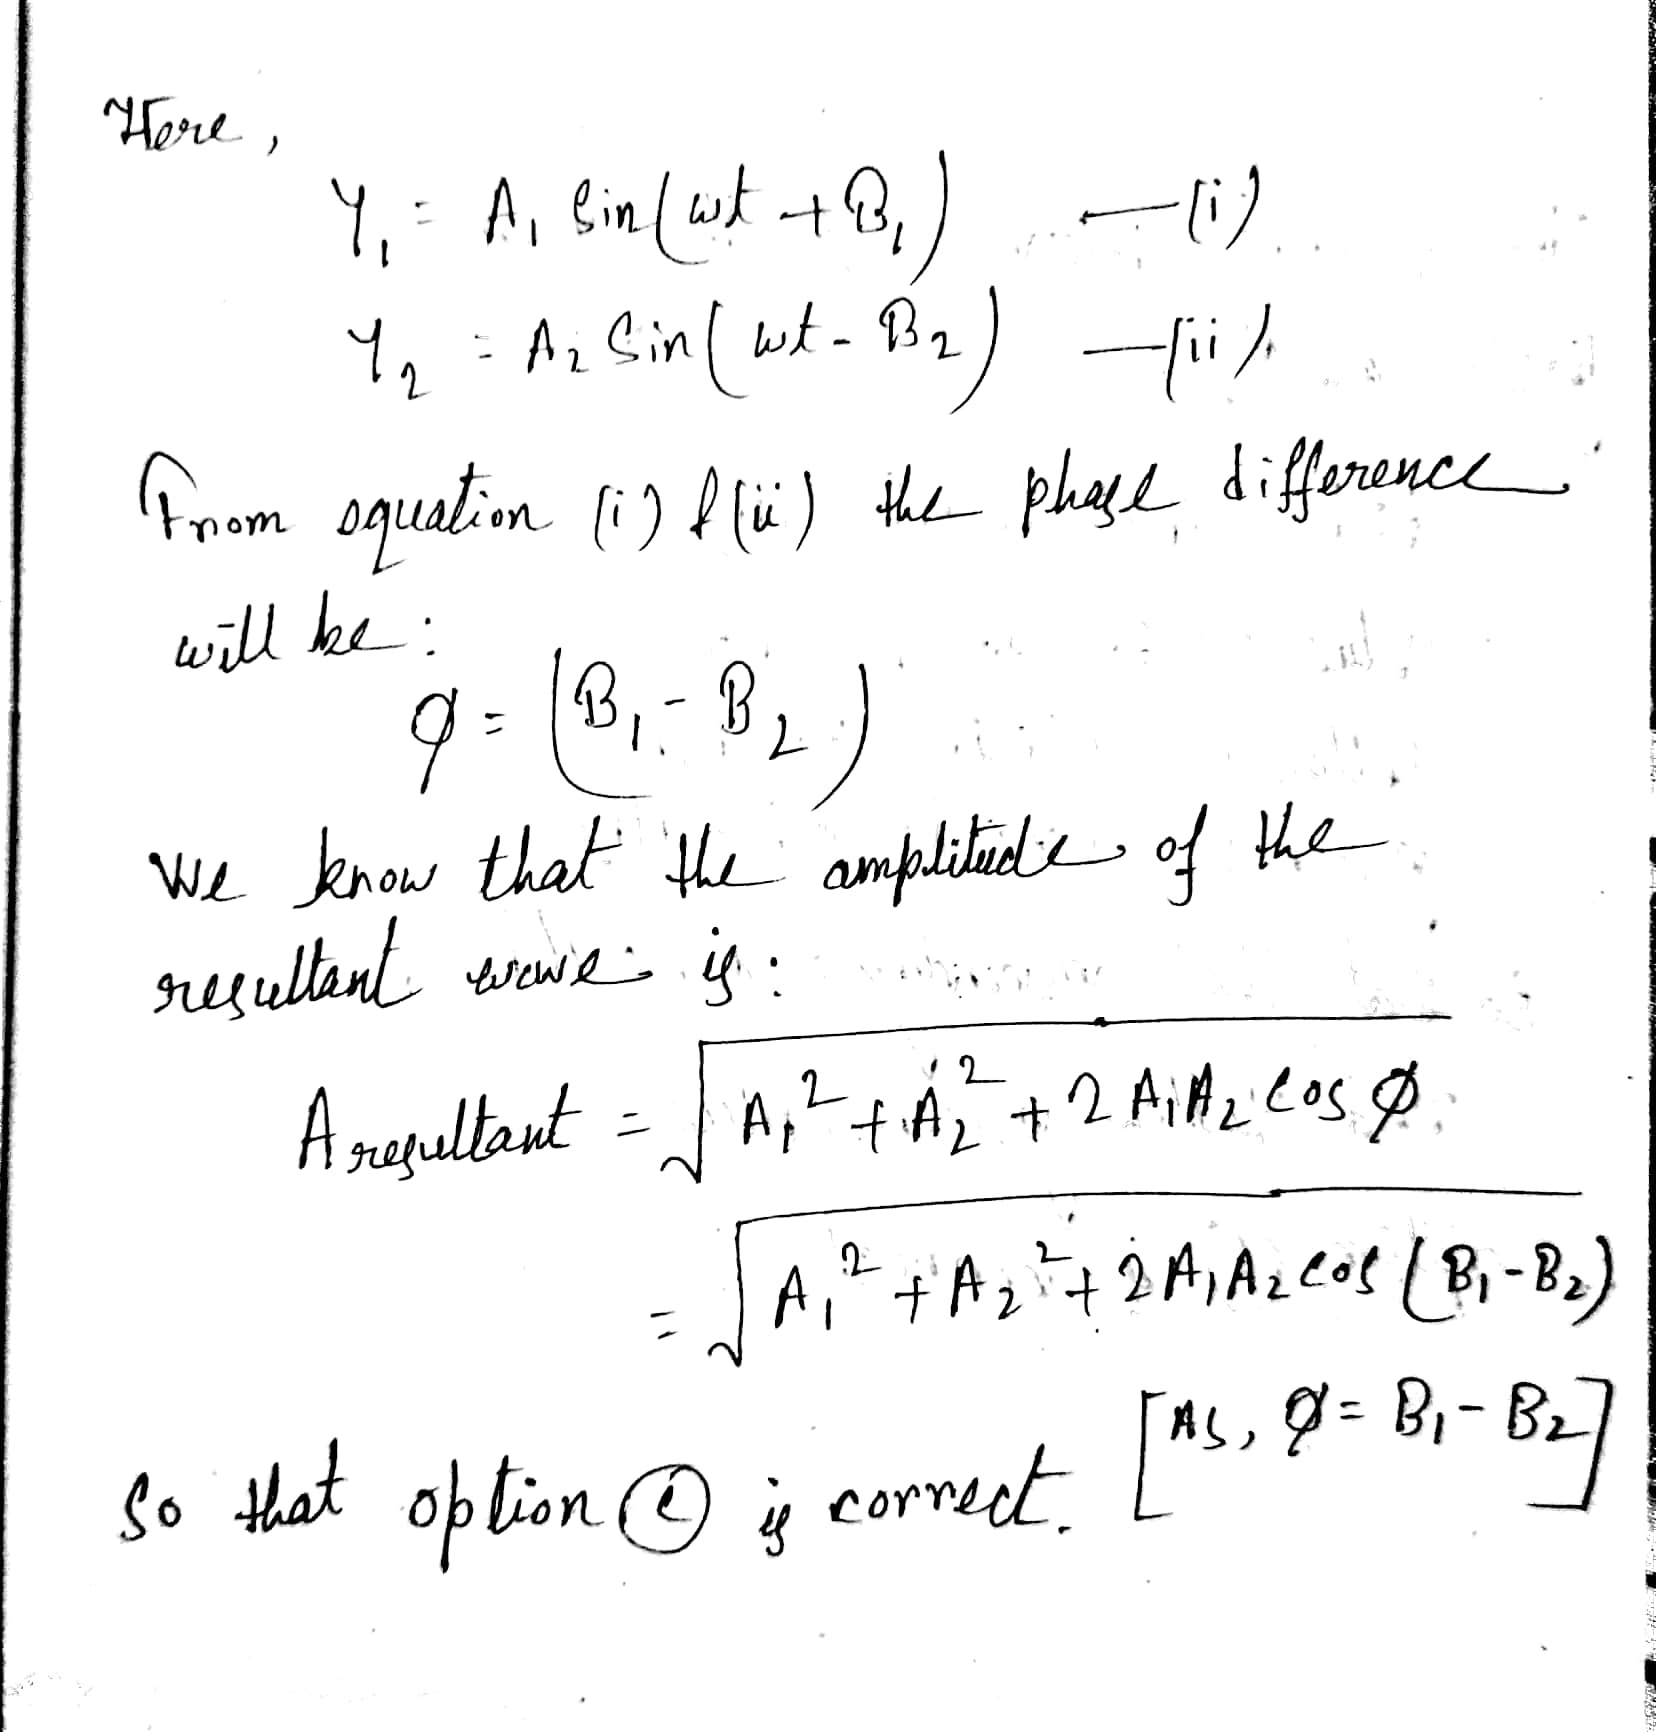 Here,
Y₁ = A₁ Sin(wt + B₁) —(i)
Y₂ = A₂ Sin(wt - B₂) —(ii)
From equation (i) & (ii) the phase difference
will be :
φ = (B₁ - B₂)
We know that the amplitude of the
resultant wave is :
A resultant = √(A₁² + A₂² + 2 A₁A₂ cos φ)
= √(A₁² + A₂² + 2 A₁A₂ cos (B₁ - B₂))
[As, φ = B₁ - B₂]
So that option ⓒ is correct.